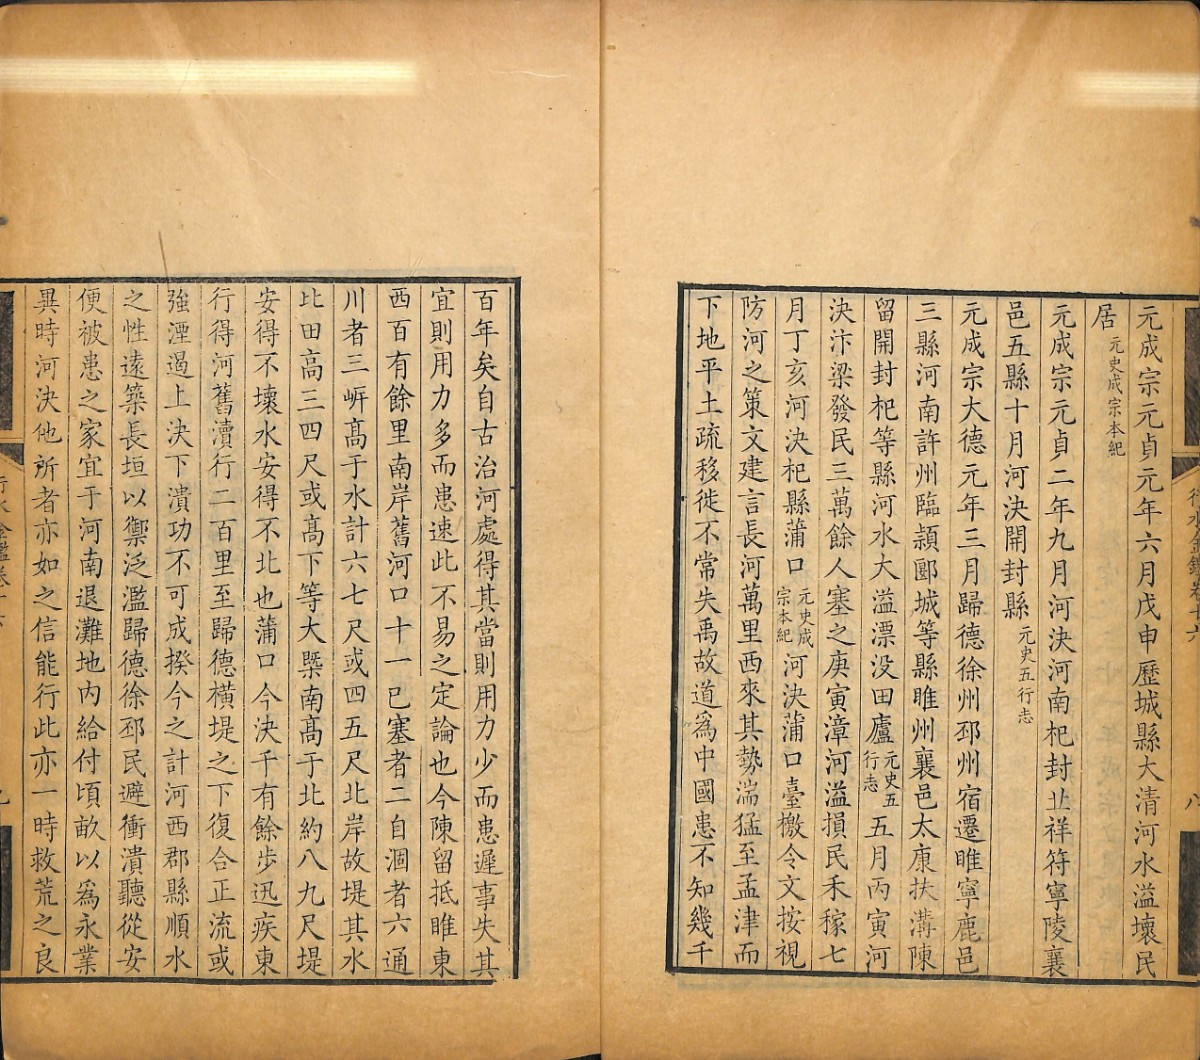 元成宗元貞元年六月戊申歷城縣大清河水溢壞民
居元史成宗本紀
元成宗元貞二年九月河決河南杞封丘祥符寧陵襄
邑五縣十月河決開封縣元史五行志
元成宗大德元年三月歸德徐州邳州宿遷睢寧鹿邑
三縣河南許州臨潁郾城等縣睢州襄邑太康扶溝陳
留開封杞等縣河水大溢漂没田廬元史五行志五月丙寅河
決汴梁發民三萬餘人塞之庚寅漳河溢損民禾稼七
月丁亥河決杞縣蒲口元史成宗本紀河決蒲口臺檄令文按視
防河之策文建言長河萬里西來其勢湍猛至孟津而
下地平土疏移徙不常失禹故道為中國患不知幾千
百年矣自古治河處得其當則用力少而患遲事失其
宜則用力多而患速此不易之定論也今陳留抵睢東
西百有餘里南岸舊河口十一已塞者二自涸者六通
川者三岍高于水計六七尺或四五尺北岸故堤其水
比田高三四尺或高下等大槩南高于北約八九尺堤
安得不壞水安得不北也蒲口今決千有餘步迅疾東
行得河舊瀆行二百里至歸德橫堤之下復合正流或
強湮遏上決下潰功不可成揆今之計河西郡縣順水
之性遠築長垣以禦泛濫歸德徐邳民避衝潰聽從安
便被患之家宜于河南退灘地內給付頃畝以為永業
異時河決他所者亦如之信能行此亦一時救荒之良